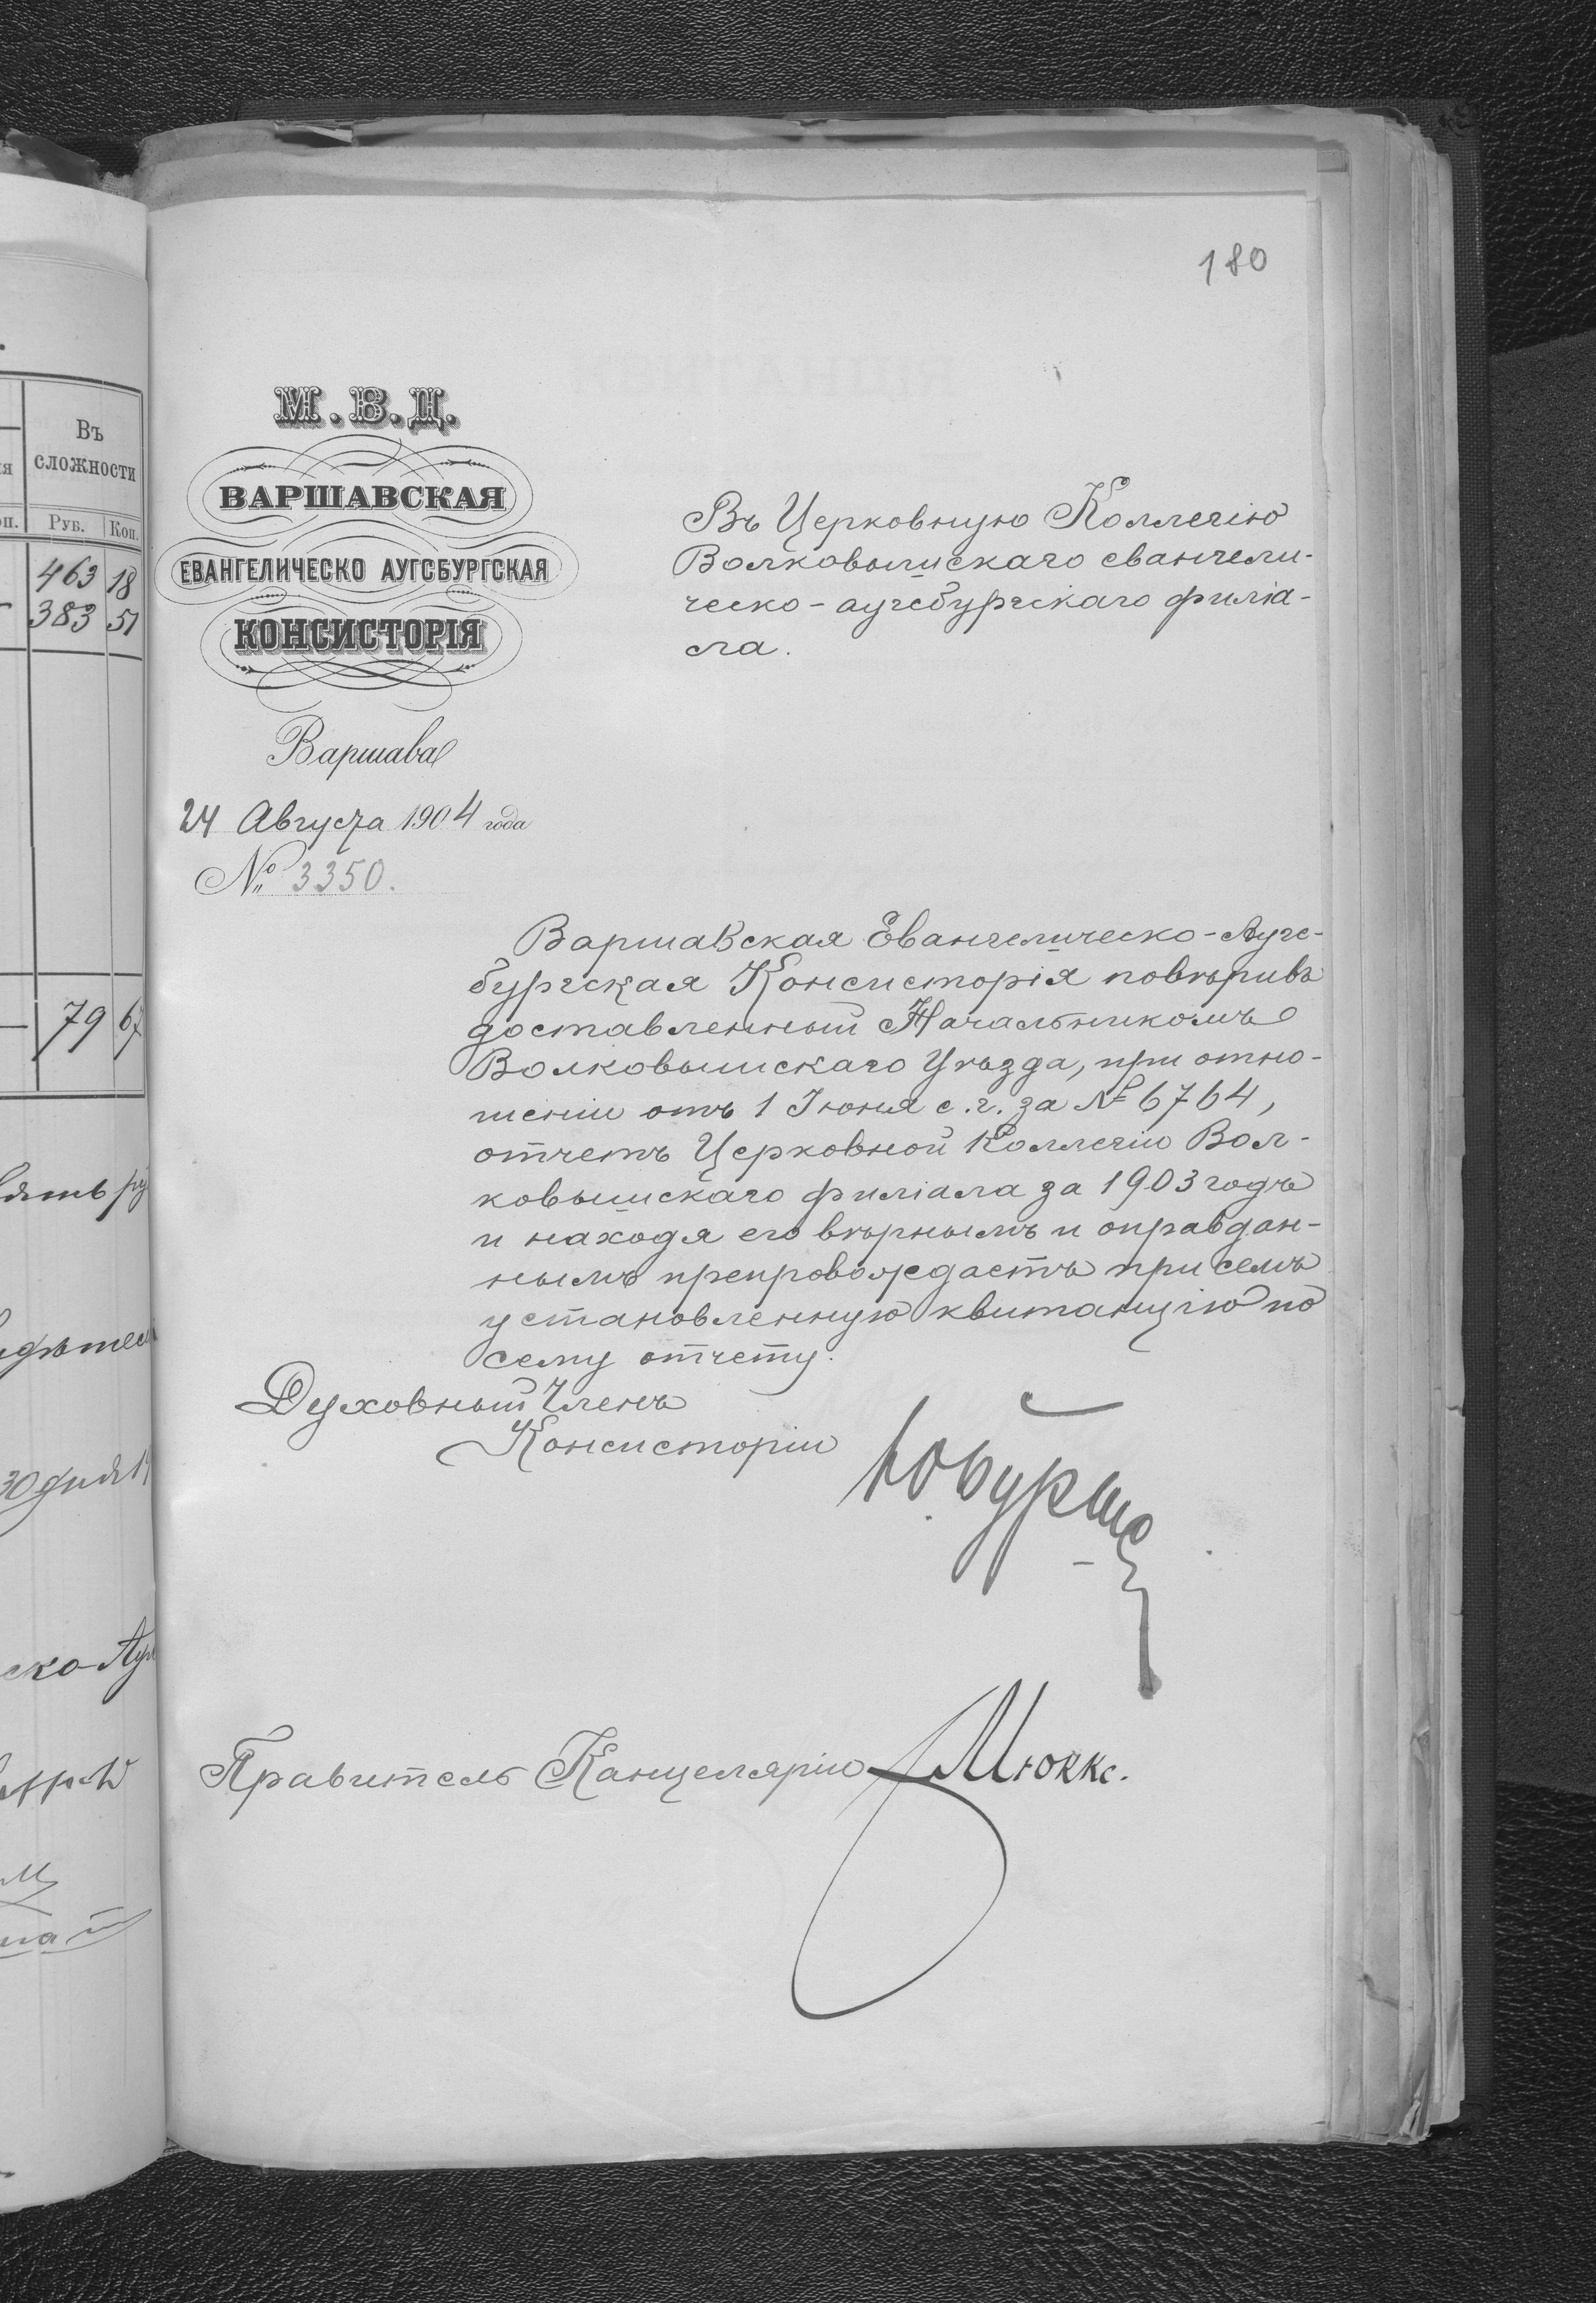 180
М.В.Д.
ВАРШАВСКАЯ
ЕВАНГЕЛИЧЕСКО АУГСБУРГСКАЯ
КОНСИСТОРІЯ
Варшава
24 Августа 1904 года
№ 3350.
Въ Церковную Коллегію
Волковышскаго евангели-
ческо-аугсбургскаго филіа-
ла.
Варшавская Евангелическо-Аугс-
бургская Консисторія повѣривъ
доставленный Начальникомъ
Волковышскаго Уѣзда, при отно-
шеніи отъ 1 Іюня с.г. за № 6764,
отчетъ Церковной Коллегіи Вол-
ковышскаго филіала за 1903 годъ
и находя его вѣрнымъ и оправдан-
нымъ препровождаетъ при семъ
установленную квитанцію по
сему отчету.
Духовный Членъ
Консисторіи
Правитель Канцеляріи
Въ
сложности
Руб. Коп.
463 18
383 51
79 67